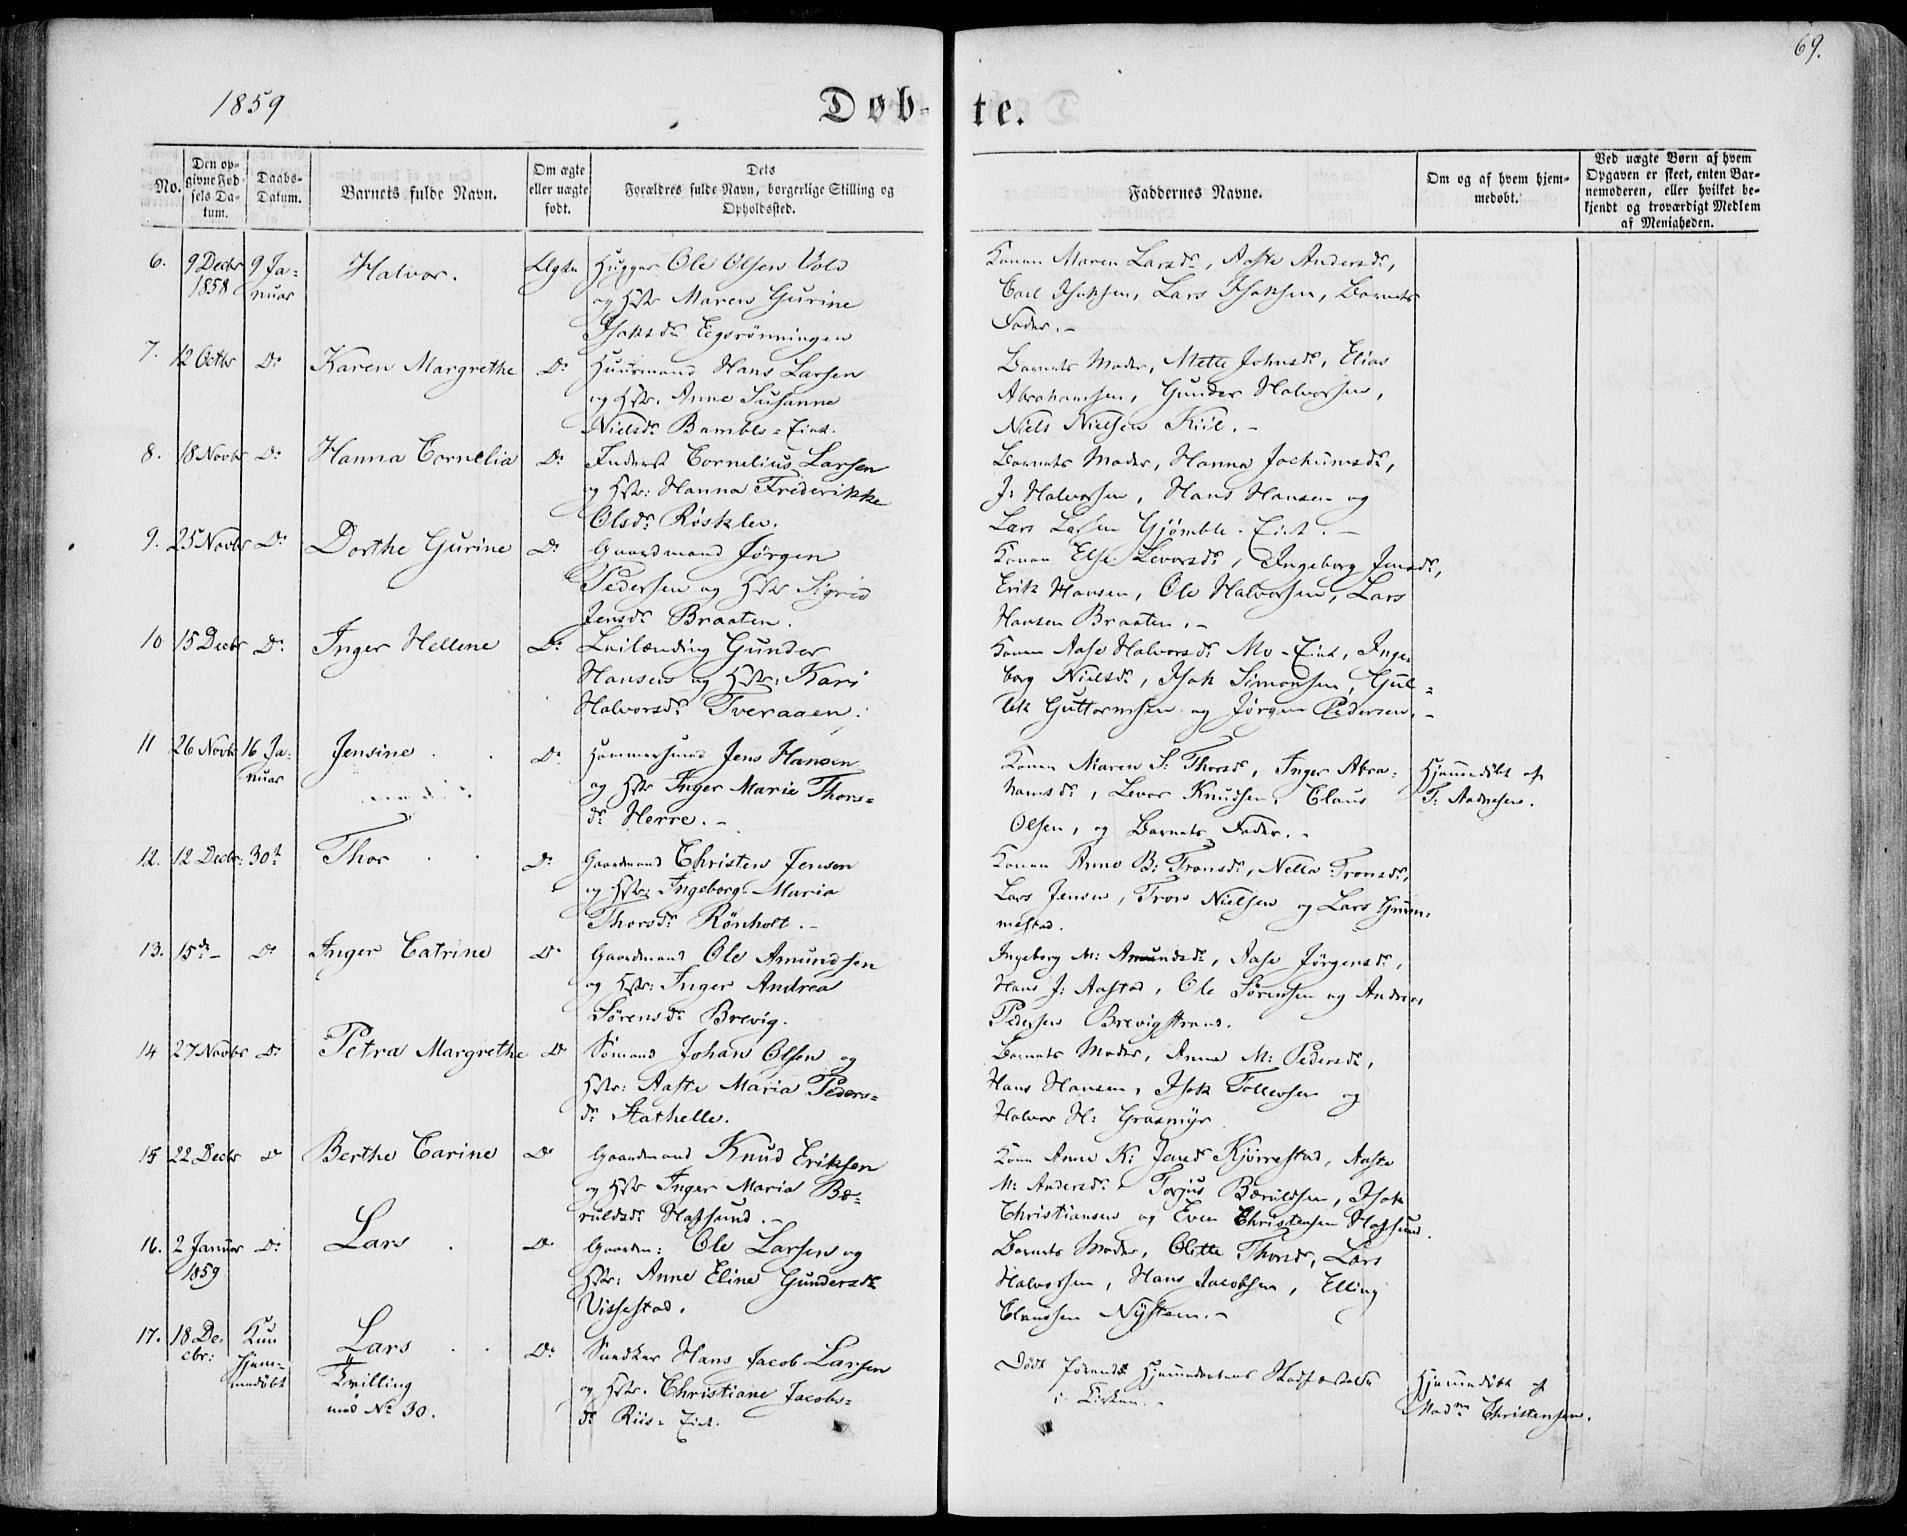 69.
1859
Døb-
te.
No.
Den op-
givne Fød-
sels Da-
tum.
Daabs-
Datum.
Barnets fulde Navn.
Om ægte
eller uægte
født.
Dets
Forældres fulde Navn, borgerlige Stilling og
Opholdssted.
Faddernes Navne.
Om og af hvem hjem-
medøbt.
Ved uægte Børn af hvem
Opgaven er skeet, enten Bar-
nemoderen, eller hvilket be-
kjendt og troværdigt Medlem
af Menigheden.
6.
9 Decbr
1858
9 Ja-
nuar
Halvor.
Ægte
Hugger Ole Olsen Vold
og Hstr Maren Gurine
Isaksdr Egsrønningen
Konen Maren Larsdr, Aaste Andersdr,
Carl Isaksen, Lars Isaksen, Barnets
Fader. -
7.
12 Octbr
Do
Karen Margrethe
Do
Huusmand Hans Larsen
og Hstr. Anne Susanne
Nielsdr Bamble-Eiet.
Barnets Moder, Mette Johnsdr, Elias
Abrahamsen, Gunder Halvorsen,
Niels Nielsen Kiil. -
8.
18 Novbr
Do
Hanna Cornelia
Do
Inderst Cornelius Larsen
og Hstr: Hanna Frederikke
Olsdr. Røsklev.
Barnets Moder, Hanna Jochumsdr,
J: Halvorsen, Hans Hansen og
Lars Larsen Gjømble-Eiet. -
9.
25 Novbr
Do
Dorthe Gurine
Do
Gaardmand Jørgen
Pedersen og Hstr Sigrid
Jensdr Braaten.
Konen Else Levorsdr, Ingeborg Jensdr,
Erik Hansen, Ole Halvorsen, Lars
Hansen Braaten. -
10
15 Decbr
Do
Inger Hellene
Do
Leilænding Gunder
Hansen og Hstr: Kari
Halvorsdr Tveraaen.
Konen Aase Halvorsdr Mo-Eiet, Inge-
borg Nielsdr, Isak Simonsen, Gul-
lek Guttormsen og Jørgen Pedersen. -
11
26 Novbr
16 Ja-
nuar
Jensine
Do
Hammersmed Jens Hansen
og Hstr Inger Marie Thors-
dr Herre. -
Konen Maren S: Thorsdr, Inger Abra-
hamsdr, Levor Knudsen, Claus
Olsen, og Barnets Fader. -
Hjemmedøbt af
T. Aadnesen.
12.
12 Decbr:
30te
Thor
Do
Gaardmand Christen Jensen
og Hstr: Ingeborg Maria
Thorsdr Rønholt. -
Konen Anne B: Tronsdr, Nella Tronsdr,
Lars Jensen, Tron Nielsen og Lars Grum-
mestad.
13.
15de -
Do
Inger Catrine
Do
Gaardmand Ole Amundsen
og Hstr: Inger Andrea
Sørensdr Brevig.
Ingeborg M: Amundsdr, Aase Jørgensdr,
Hans J: Aastad, Ole Sørensen og Andreas
Pedersen Brevigstrand.
14
27 Novbr
Do
Petra Margrethe
Do
Sømand Johan Olsen og
Hstr: Aaste Maria Peders-
dr Stathelle.
Barnets Moder, Anne M: Pedersdr,
Hans Hansen, Isak Tollevsen og
Halvor H: Grasmyr
15
22 Decbr
Do
Berthe Carine
Do
Gaardmand Knud Eriksen
og Hstr Inger Maria Bæ-
ruldsdr Hafsund. -
Konen Anne K: Jensdr Kjørrestad, Aaste
M: Andersdr, Torjus Bæruldsen, Isak
Christiansen og Even Christensen Hafsund.
16.
2 Januar
1859
Do
Lars
Do
Gaardm: Ole Larsen og
Hstr: Anne Eline Gundersdr
Vissestad.
Barnets Moder, Olette Thorsdr, Lars
Halvorsen, Hans Jacobsen, Elling
Claussen Nysten. -
17.
18 De-
cbr:
Kun
hjem-
medøbt
Lars
Tvilling
med No 30.
Do
Snedker Hans Jacob Larsen
og Hstr. Christiane Jacobs-
dr Riis-Eiet.
Død førend Hjemmedaabens Stadfæstelse
i Kirken. -
Hjemmedøbt af
Madm Christensen.